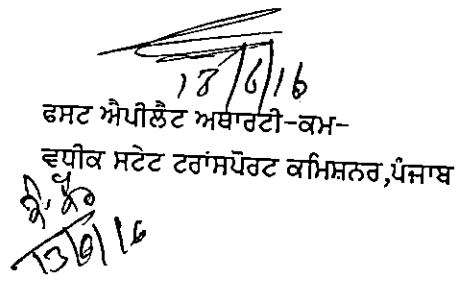 13/6/16
ਫਸਟ ਐਪੀਲੈਟ ਅਥਾਰਟੀ-ਕਮ-
ਵਧੀਕ ਸਟੇਟ ਟਰਾਂਸਪੋਰਟ ਕਮਿਸ਼ਨਰ,ਪੰਜਾਬ
13/6/16